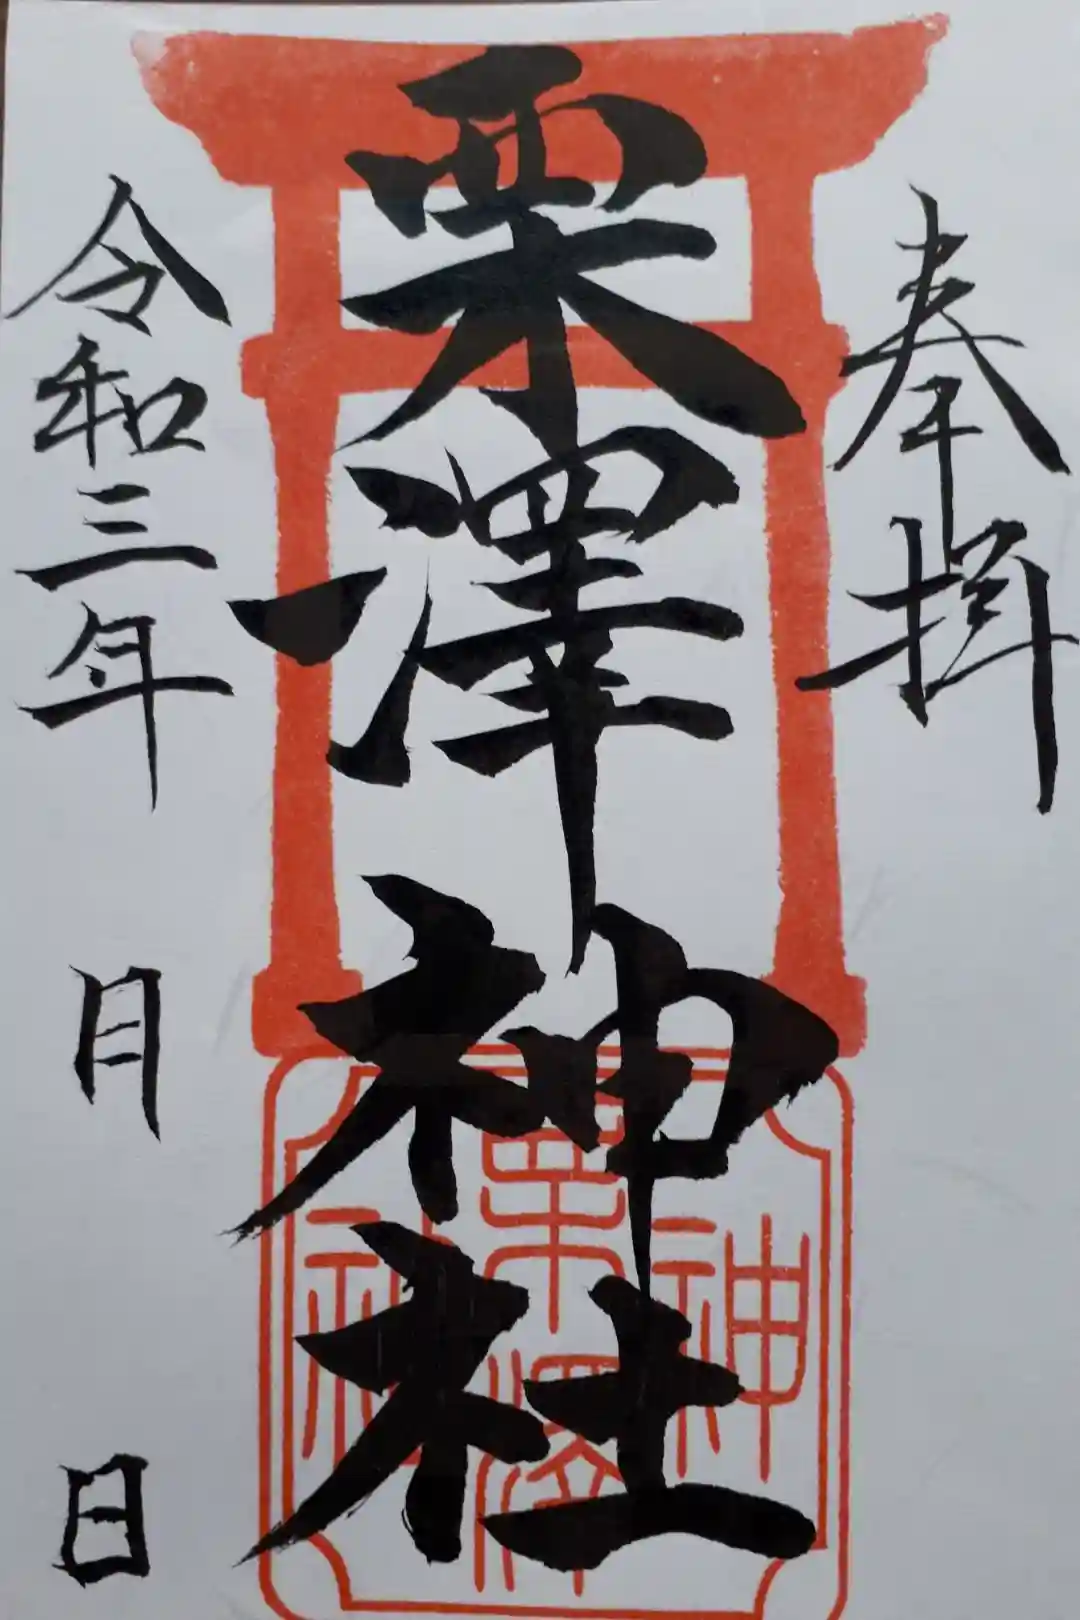 奉拝
栗澤神社
令和三年 月 日
栗澤神社